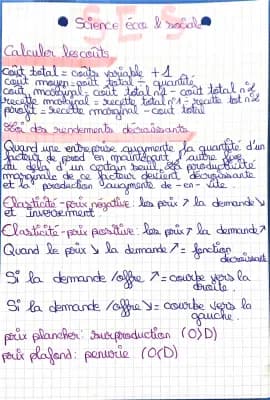 Science éco & sociale
SES
Calculer les coûts
coût total = coûts variable + 1
coût moyen = coût total - quantité
coût marginal = coût total n°1 - coût total n°2
recette marginal = recette totale n°1 - recette tot n°2
profit = recette marginal - coût total
des rendements décroissants
Quand une entreprise augmente la quantité d'un
facteur de prod en maintenant l'autre fixe,
au delà d'un certain seuil, productivité
marginale de ce facteur devient décroissante
et la production augmente de - en - vite.
Elasticité-prix négative: les prix ↗ la demande ↘
et inversement.
Elasticité-prix positive: les prix ↗ la demande ↗
Quand le prix ↘ la demande ↗ = fonction
décroissante
Si la demande/offre ↗ = courbe vers la
droite.
Si la demande/offre ↘ = courbe vers la
gauche.
prix plancher: surproduction (O>D)
prix plafond: penurie (O<D)